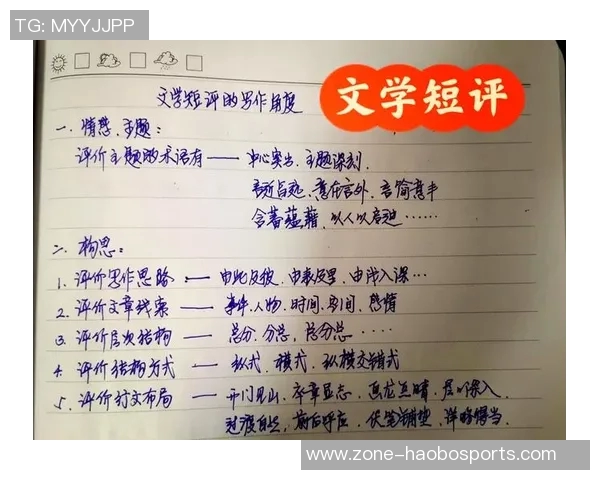 TG: MYYJJPP
文学短评的写作角度
文学短评
一、情感、主题：
评价主题的术语有——中心突出、主题深刻、
言近旨远、意在言外、言简意丰
含蓄蕴藉、以人以启迪……
二、构思：
1、评价写作思路——由此及彼、由表及里、由浅入深…
2、评价文章线索——事件、人物、时间、空间、感情
3、评价层次结构——总分、分总、总分总……
4、评价结构方式——纵式、横式、纵横交错式
5、评价行文布局——开门见山、卒章显志、画龙点睛、层层深入、
过渡自然、前后呼应、伏笔铺垫、详略得当。
www.zone-haobosports.com